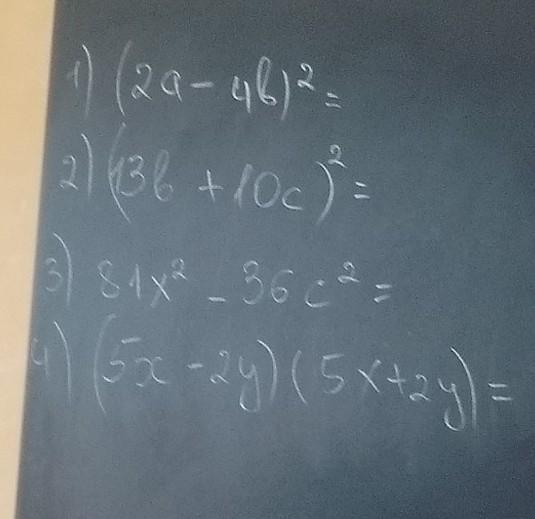 1) (2a - 4b)² =
2) (13b + 10c)² =
3) 81x² - 36c² =
4) (5x - 2y)(5x + 2y) =